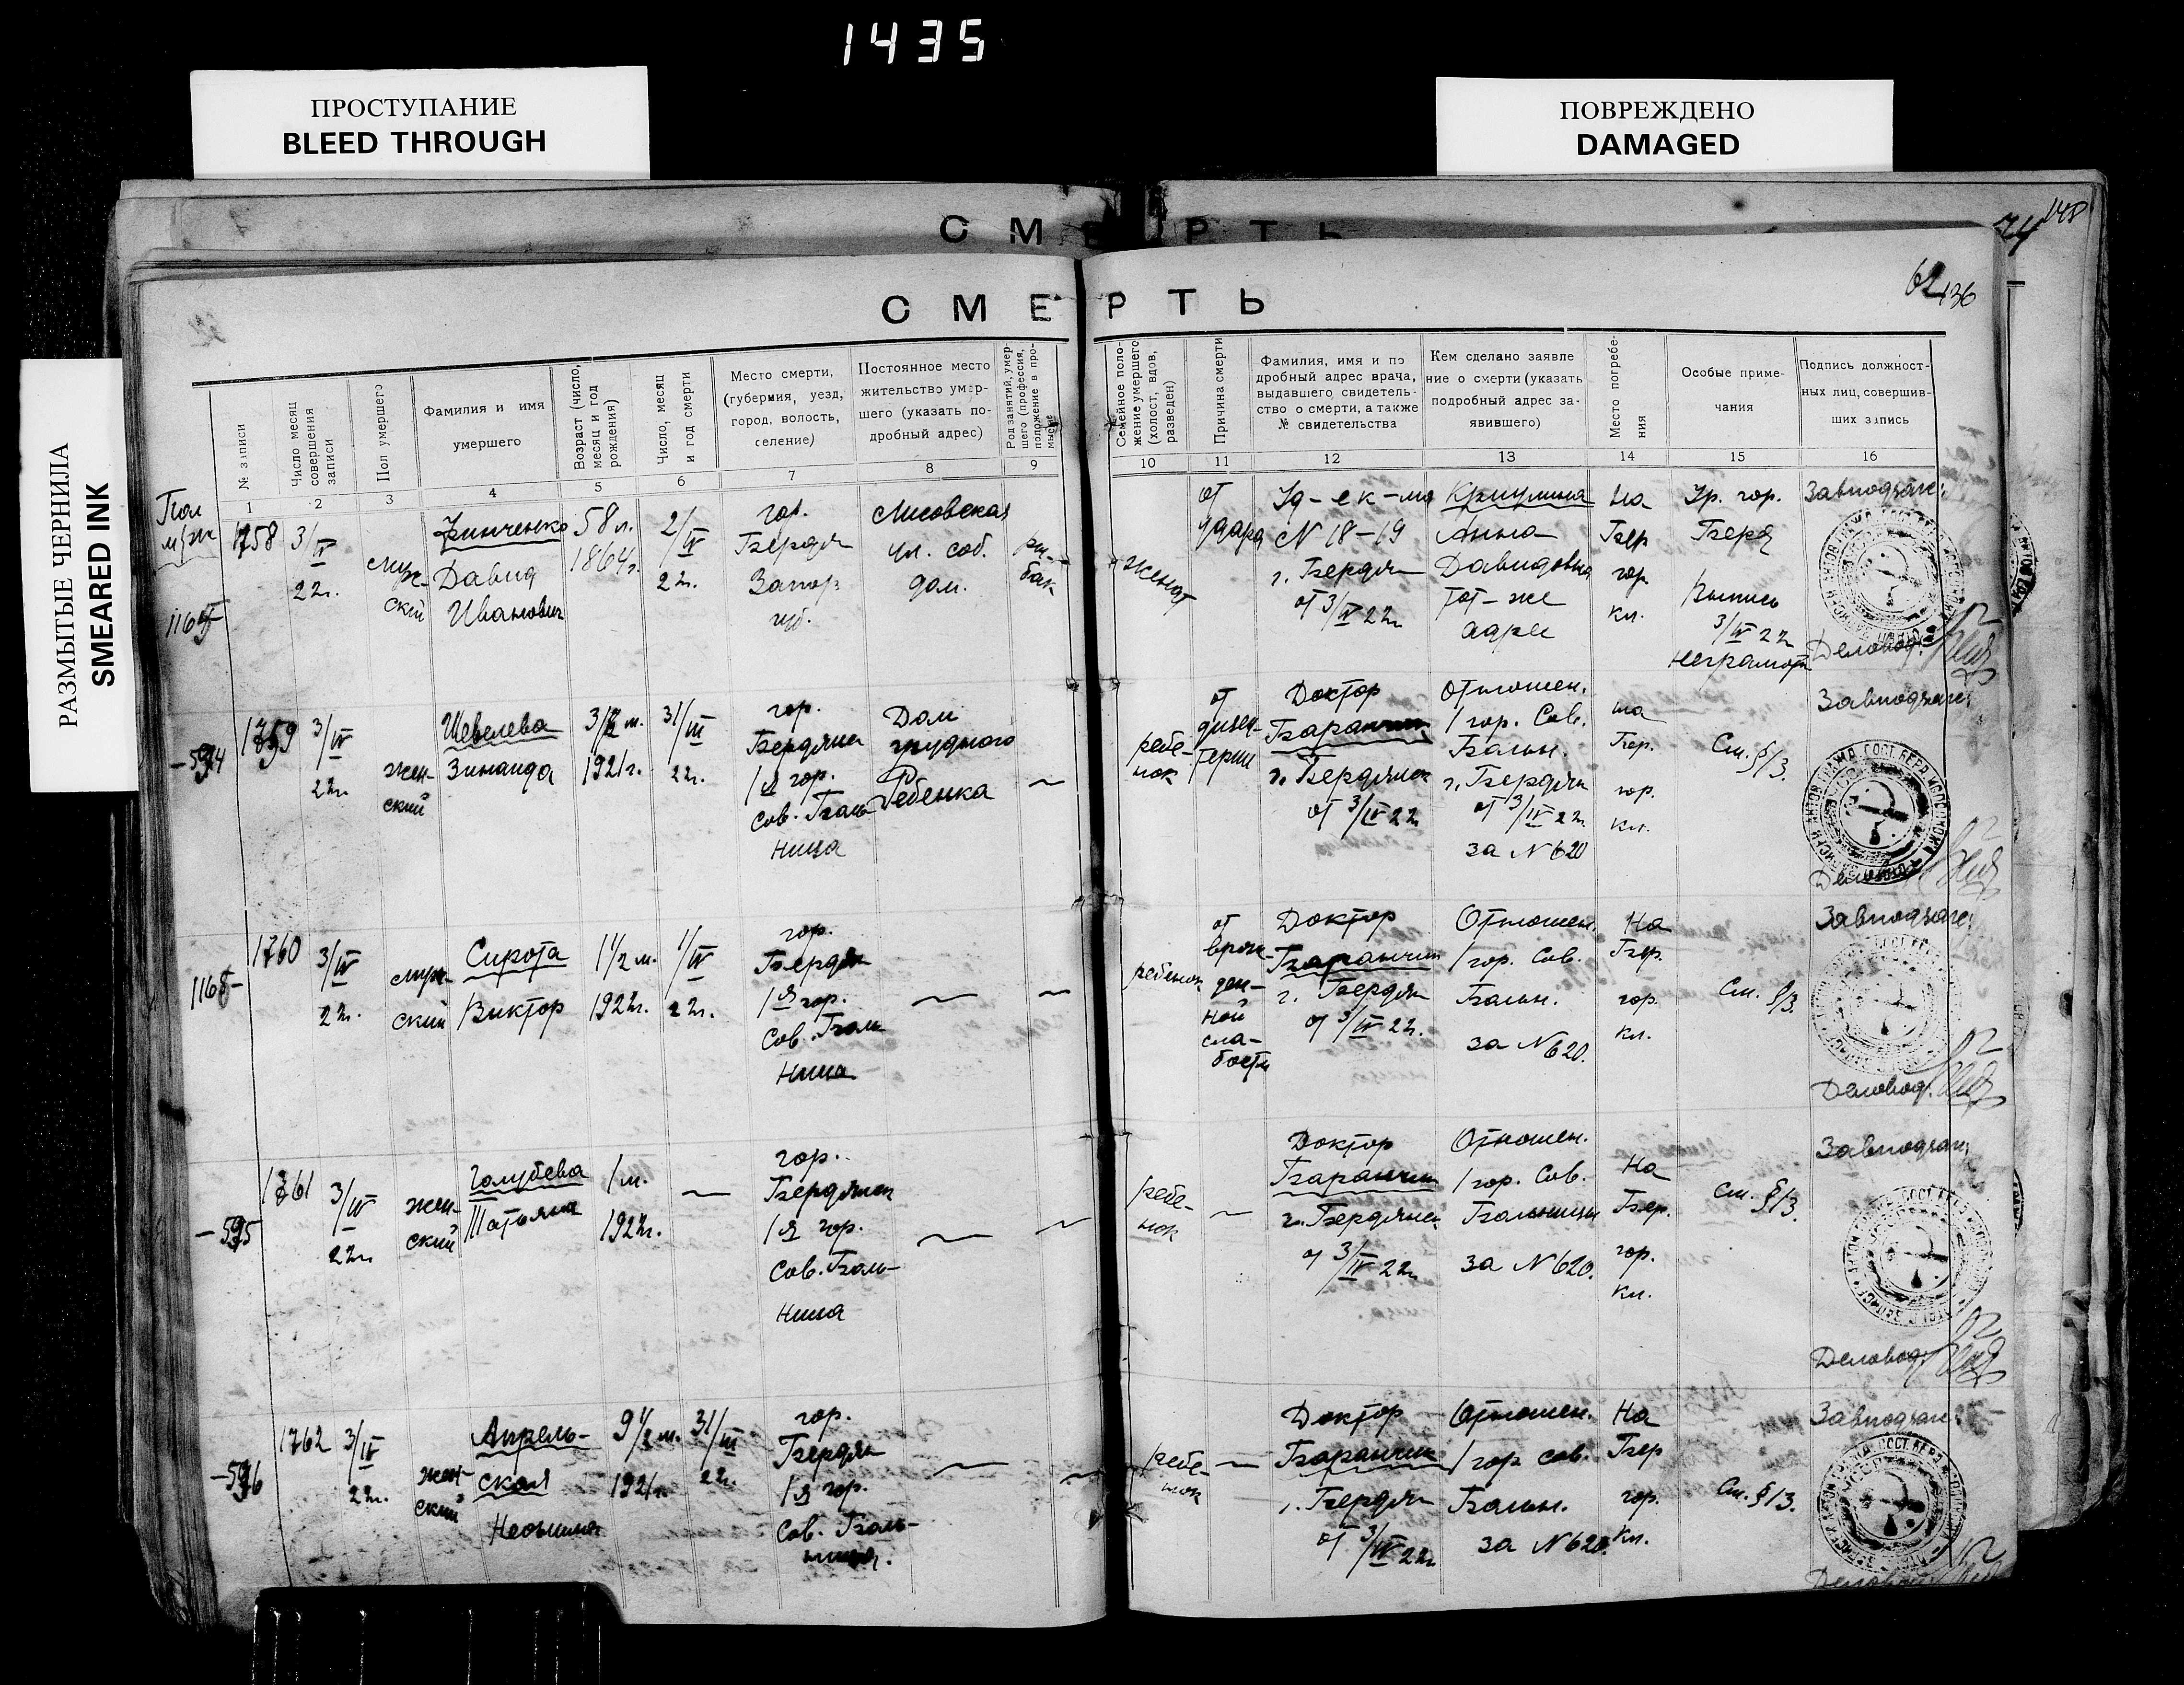 1435
ПРОСТУПАНИЕ
BLEED THROUGH
ПОВРЕЖДЕНО
DAMAGED
РАЗМЫТЫЕ ЧЕРНИЛА
SMEARED INK
148
74
СМЕРТЬ
62 136
СМЕРТЬ
№ записи
Число месяц совершения записи
Пол умершего
Фамилия и имя
умершего
Возраст (число, месяц и год рождения)
Число, месяц и год смерти
Место смерти,
(губерния, уезд,
город, волость,
селение)
Постоянное место
жительство умер-
шего (указать по-
дробный адрес)
Род занятий, умер-
шего (профессия,
положение в про-
мысле
Семейное поло-
жение умершего
(холост, вдов,
разведен)
Причина смерти
Фамилия, имя и по
дробный адрес врача,
выдавшего свидетель-
ство о смерти, а также
№ свидетельства
Кем сделано заявле
ние о смерти (указать
подробный адрес за-
явившего)
Место погребе-
ния
Особые приме-
чания
Подпись должност-
ных лиц, совершив-
ших запись
1 2 3 4 5 6 7 8 9 10 11 12 13 14 15 16
Пол
1164
1758
3/IV
22г.
муж-
ский
Зинченко
Давид
Иванович
58 л.
1864г.
2/IV
22г.
гор.
Бердян
Запор.
губ.
Лисовская
ул. соб.
дом.
ры-
бак
женат
от
удара
N 18-19
г. Бердян
от 3/IV 22г
Анна
Давидовна
Тот-же
адрес
на
Бер
гор.
кл.
Гр. гор.
Берд
Выпись
3/IV 22г
неграмотн
Завподзаг:
Деловод.
-594
1759
3/IV
22г.
жен-
ский
Шевелева
Зинаида
3/2 м.
1921г.
31/III
22г.
гор.
Бердянск
1я гор.
Сов. Боль-
ница
Дом
грудного
Ребенка
ребе-
нок
от
дизен-
терии
Доктор
Баранчик
г. Бердянск
от 3/IV 22г
Отношен.
1 гор. Сов.
Больн.
г. Бердян
от 3/IV 22г.
за N 620
на
Бер.
гор.
кл.
См. §13.
Завподзаг:
1165
1760
3/IV
22г.
муж-
ский
Сирота
Виктор
1 1/2 м.
1922г.
1/IV
22г.
гор.
Бердян
1я гор.
Сов. Боль
ница
ребенок
от
врож-
ден-
ной
сла-
бости
Доктор
Баранчик
г. Бердян
от 3/IV 22г.
Отношен.
1 гор. Сов.
Больн.
за N 620.
На
Бер.
гор.
кл.
См. §13.
Завподзаг:
Деловод.
-595
1761
3/IV
22г.
жен-
ский
Голубева
Татьяна
1 м.
1922г.
гор.
Бердянск
1я гор.
Сов. Боль-
ница
ребе-
нок
Доктор
Баранчик
г. Бердянск
от 3/IV 22г
Отношен.
1 гор. Сов.
Больницы
за N 620.
На
Бер.
гор.
кл.
См. §13.
Завподзаг:
Деловод.
-596
1762
3/IV
22г.
жен-
ский
Апрель-
ская
9 1/2 м.
1921г.
31/III
22г.
гор.
Бердян
1я гор.
Сов. Боль-
ница.
ребе-
нок
Доктор
Баранчик
г. Бердян
от 3/IV 22г
Отношен.
1 гор Сов.
Больн.
за N 620.
На
Бер
гор.
кл.
См. §13.
Завподзаг